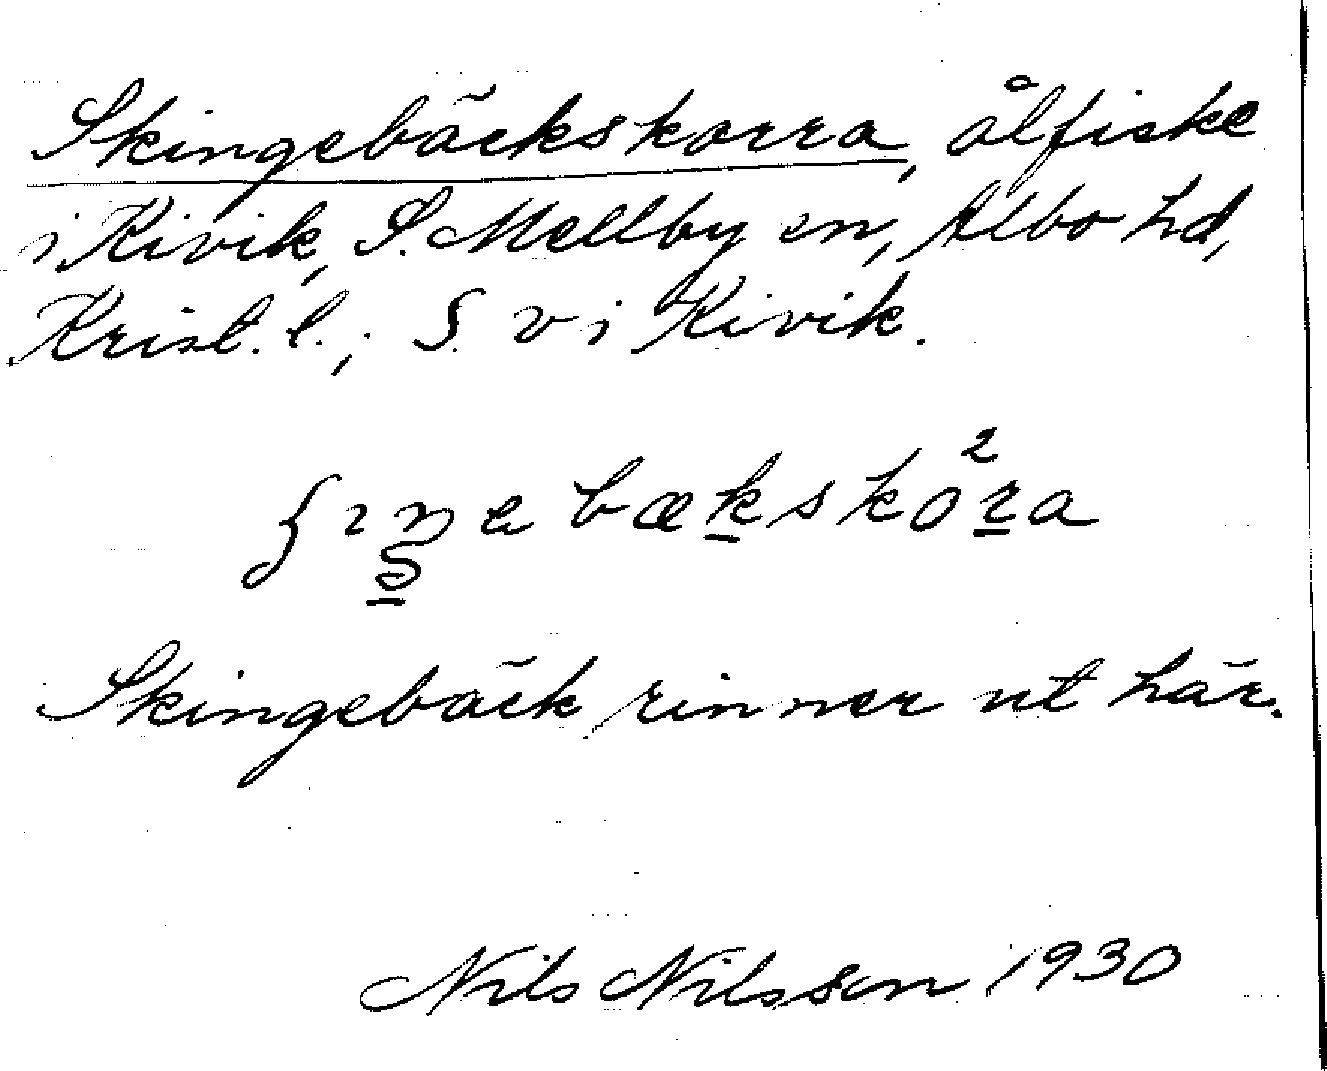 Skingebäckskorra, ålfiske
i Kivik, S. Mellby sn, Albo hd,
Krist. l.; S. v i Kivik.
ʃıŋebækskoꝛ²a
Skingebäck rinner ut här.
Nils Nilsson 1930